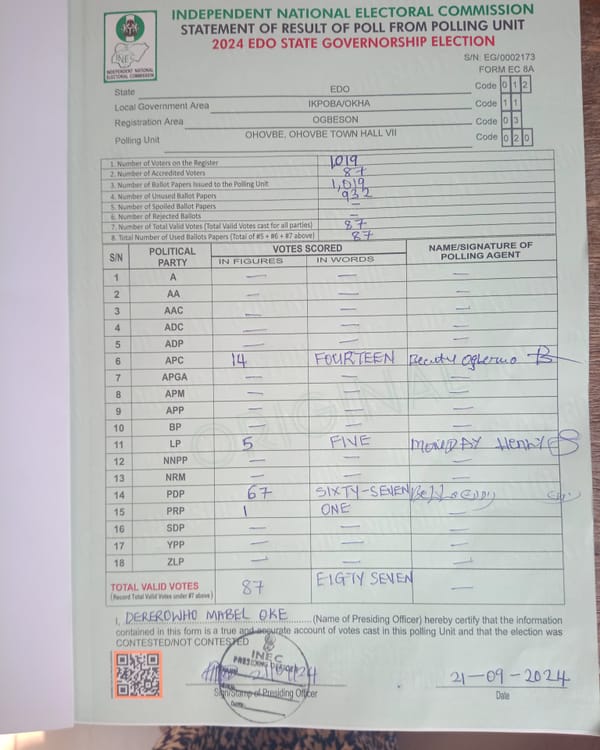 INDEPENDENT NATIONAL ELECTORAL COMMISSION
STATEMENT OF RESULT OF POLL FROM POLLING UNIT
2024 EDO STATE GOVERNORSHIP ELECTION
INEC
INDEPENDENT NATIONAL
ELECTORAL COMMISSION
S/N: EG/0002173
FORM EC 8A
State EDO Code 0 1 2
Local Government Area IKPOBA/OKHA Code 1 1
Registration Area OGBESON Code 0 3
Polling Unit OHOVBE, OHOVBE TOWN HALL VII Code 0 2 0
1. Number of Voters on the Register 1,019
2. Number of Accredited Voters 87
3. Number of Ballot Papers Issued to the Polling Unit 1,019
4. Number of Unused Ballot Papers 932
5. Number of Spoiled Ballot Papers —
6. Number of Rejected Ballots —
7. Number of Total Valid Votes (Total Valid Votes cast for all parties) 87
8. Total Number of Used Ballots Papers (Total of #5 + #6 + #7 above) 87
S/N POLITICAL PARTY VOTES SCORED NAME/SIGNATURE OF POLLING AGENT
IN FIGURES IN WORDS
1 A — — —
2 AA — — —
3 AAC — — —
4 ADC — — —
5 ADP — — —
6 APC 14 FOURTEEN
7 APGA — — —
8 APM — — —
9 APP — — —
10 BP — — —
11 LP 5 FIVE MONDAY Henry
12 NNPP — — —
13 NRM — — —
14 PDP 67 SIXTY-SEVEN
15 PRP 1 ONE —
16 SDP — — —
17 YPP — — —
18 ZLP — — —
TOTAL VALID VOTES 87 EIGTY SEVEN —
(Record Total Valid Votes under #7 above)
ORIGINAL
I, DEREROWHO MABEL OKE (Name of Presiding Officer) hereby certify that the information
contained in this form is a true and accurate account of votes cast in this polling Unit and that the election was
CONTESTED/NOT CONTESTED
INEC
PRESIDING OFFICER
Sign/Stamp of Presiding Officer
21-09-2024
Date